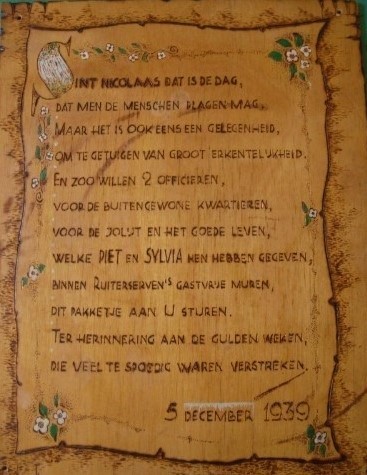 SINT NICOLAAS DAT IS DE DAG,
DAT MEN DE MENSCHEN PLAGEN MAG,
MAAR HET IS OOK EENS EEN GELEGENHEID,
OM TE GETUIGEN VAN GROOT ERKENTELIJKHEID.
EN ZOO WILLEN 2 OFFICIEREN,
VOOR DE BUITENGEWONE KWARTIEREN,
VOOR DE JOLIJT EN HET GOEDE LEVEN,
WELKE PIET EN SYLVIA HEN HEBBEN GEGEVEN,
BINNEN RUITERSERVEN'S GASTVRIJE MUREN,
DIT PAKKETJE AAN U STUREN.
TER HERINNERING AAN DE GULDEN WEKEN,
DIE VEEL TE SPOEDIG WAREN VERSTREKEN.
5 DECEMBER 1939